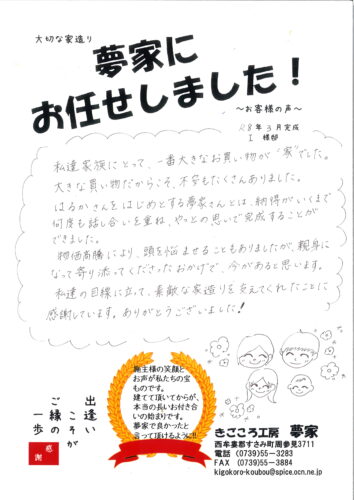 大切な家造り
夢家に
お任せしました！
～お客様の声～
R8年3月完成
I 様邸
私達家族にとって、一番大きなお買い物が“家”でした。
大きな買い物だからこそ、不安もたくさんありました。
はるかさんをはじめとする夢家さんとは、納得がいくまで
何度も話し合いを重ね、やっとの思いで完成することが
できました。
物価高騰により、頭を悩ませることもありましたが、親身に
なって寄り添ってくださったおかげで、今があると思います。
私達の目線に立って、素敵な家造りを支えてくれたことに
感謝しています。ありがとうございました！
出逢い
こそが
ご縁の
一歩
感謝
施主様の笑顔と
お声が私たちの宝
ものです。
建てて頂いてからが、
本当の長いお付き合
いの始まりです。
夢家で良かったと
言って頂けるように!!
きごころ工房 夢家
西牟婁郡すさみ町周参見3711
電話 (0739)55－3283
FAX (0739)55－3884
kigokoro-koubou@spice.ocn.ne.jp